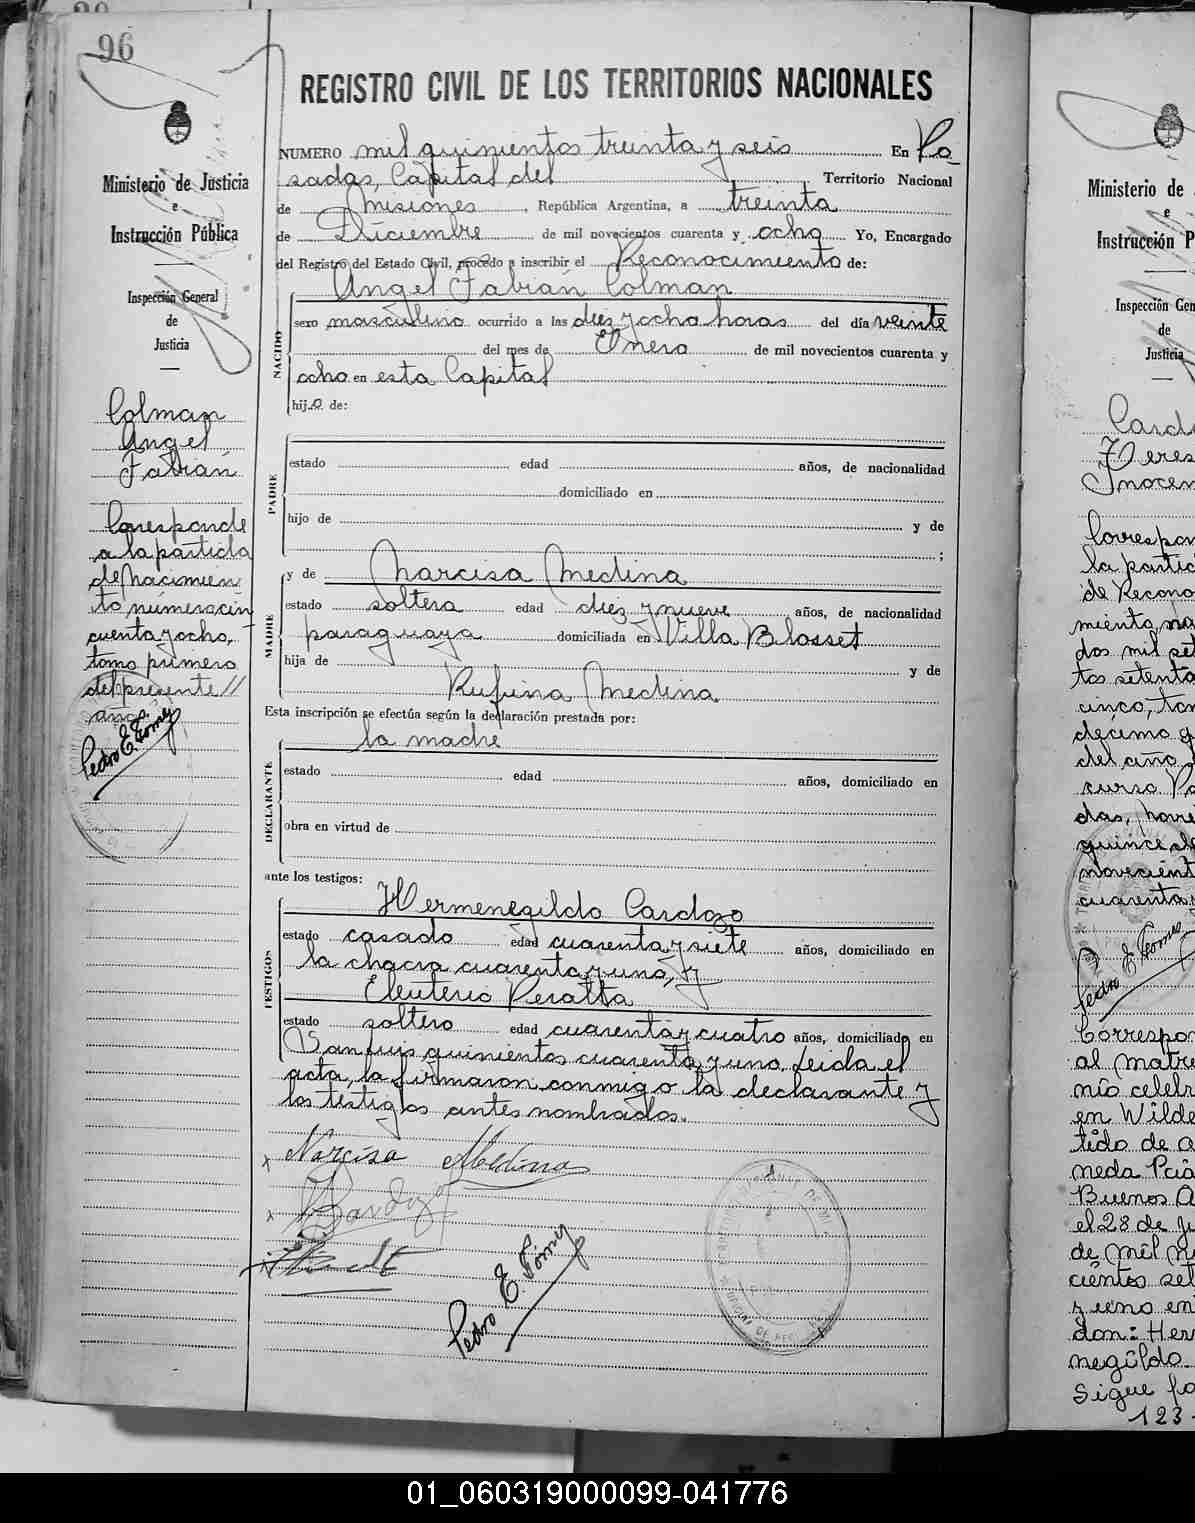 96
REGISTRO CIVIL DE LOS TERRITORIOS NACIONALES
Ministerio de Justicia
e
Instrucción Pública
Inspección General
de
Justicia
Colman
Angel
Fabián
Corresponde
a la partida
de nacimien
to número cin
cuenta y ocho,
tomo primero
del presente //
año.
Pedro E. Gómez
NUMERO mil quinientos treinta y seis En Po-
sadas, Capital del Territorio Nacional
de Misiones, República Argentina, a treinta
de Diciembre de mil novecientos cuarenta y ocho Yo, Encargado
del Registro del Estado Civil, procedo a inscribir el Reconocimiento de:
Angel Fabián Colman
NACIDO
sexo masculino ocurrido a las diez y ocho horas del día veinte
del mes de Enero de mil novecientos cuarenta y
ocho en esta Capital
hijo de:
PADRE
estado edad años, de nacionalidad
domiciliado en
hijo de y de
;
MADRE
y de Narcisa Medina
estado soltera edad diez y nueve años, de nacionalidad
paraguaya domiciliada en Villa Blosset
hija de y de
Rufina Medina
Esta inscripción se efectúa según la declaración prestada por:
la madre
DECLARANTE
estado edad años, domiciliado en
obra en virtud de
ante los testigos:
TESTIGOS
Hermenegildo Cardozo
estado casado edad cuarenta y siete años, domiciliado en
la chacra cuarenta y una, y
Eleuterio Peralta
estado soltero edad cuarenta y cuatro años, domiciliado en
San Luis quinientos cuarenta y uno. Leida el
acta, la firmaron conmigo la declarante y
los testigos antes nombrados.
x Narcisa Medina
x Cardozo
Pedro E. Gómez
Ministerio de
e
Instrucción P
Inspección Gen
de
Justicia
Cardo
Teres
Inocen
Corres pon
la partic
de Recono
miento, nú
dos mil set
tos setenta
cinco, tom
décimo q
del año
curso Po
das, nov
quince de
novecient
cuarenta y
Pedro E. Gómez
Correspo
al matri
nio celebr
en Wilde
tido de a
neda Pcia
Buenos A
el 28 de ju
de mil n
cientos set
y uno en
don: Her
negildo
Sigue fo
123-
01_060319000099-041776